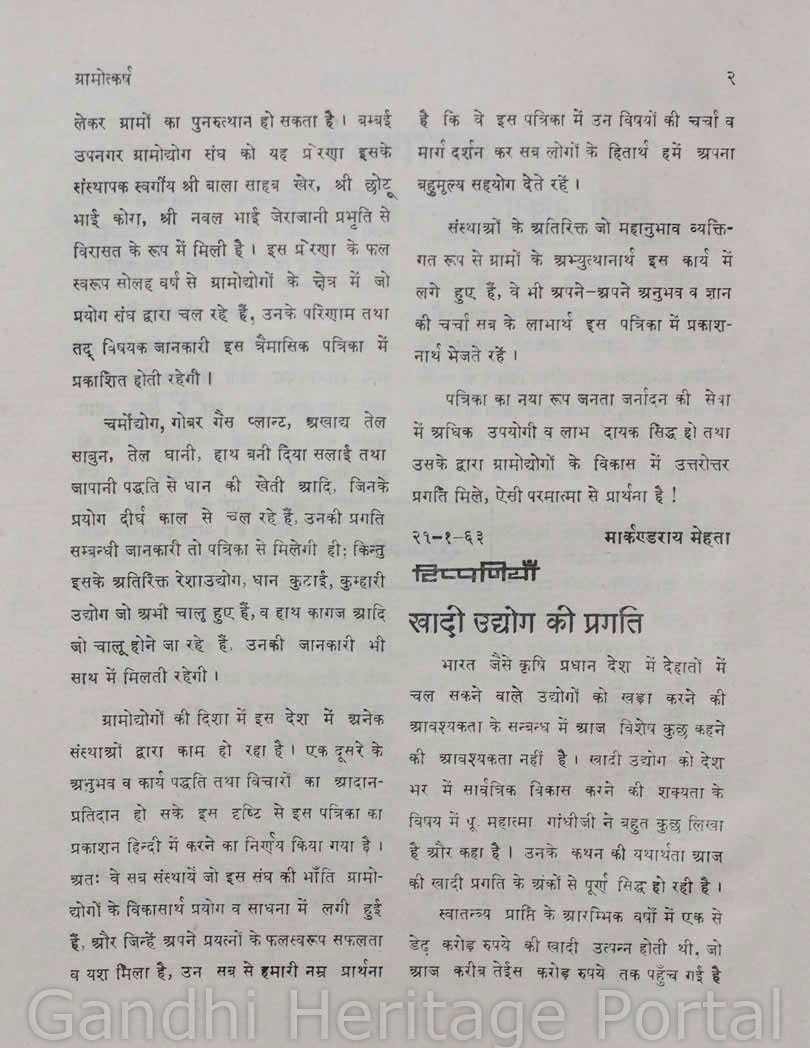 ग्रामोत्कर्ष
२
लेकर ग्रामों का पुनरुत्थान हो सकता है । बम्बई
उपनगर ग्रामोद्योग संघ को यह प्रेरणा इसके
संस्थापक स्वर्गीय श्री बाला साहब खेर, श्री छोटू
भाई कोरा, श्री नवल भाई जेराजानी प्रभृति से
विरासत के रूप में मिली है । इस प्रेरणा के फल
स्वरूप सोलह वर्ष से ग्रामोद्योगों के क्षेत्र में जो
प्रयोग संघ द्वारा चल रहे हैं, उनके परिणाम तथा
तद् विषयक जानकारी इस त्रैमासिक पत्रिका में
प्रकाशित होती रहेगी ।
चर्मोद्योग, गोबर गैस प्लान्ट, अखाद्य तेल
साबुन, तेल घानी, हाथ बनी दिया सलाई तथा
जापानी पद्धति से धान की खेती आदि, जिनके
प्रयोग दीर्घ काल से चल रहे हैं, उनकी प्रगति
सम्बन्धी जानकारी तो पत्रिका से मिलेगी ही; किन्तु
इसके अतिरिक्त रेशाउद्योग, धान कुटाई, कुम्हारी
उद्योग जो अभी चालु हुए हैं, व हाथ कागज आदि
जो चालू होने जा रहे हैं, उनकी जानकारी भी
साथ में मिलती रहेगी ।
ग्रामोद्योगों की दिशा में इस देश में अनेक
संस्थाओं द्वारा काम हो रहा है । एक दूसरे के
अनुभव व कार्य पद्धति तथा विचारों का आदान-
प्रतिदान हो सके इस दृष्टि से इस पत्रिका का
प्रकाशन हिन्दी में करने का निर्णय किया गया है ।
अतः वे सब संस्थायें जो इस संघ की भाँति ग्रामो-
द्योगों के विकासार्थ प्रयोग व साधना में लगी हुई
हैं, और जिन्हें अपने प्रयत्नों के फलस्वरूप सफलता
व यश मिला है, उन सब से हमारी नम्र प्रार्थना
है कि वे इस पत्रिका में उन विषयों की चर्चा व
मार्ग दर्शन कर सब लोगों के हितार्थ हमें अपना
बहुमूल्य सहयोग देते रहें ।
संस्थाओं के अतिरिक्त जो महानुभाव व्यक्ति-
गत रूप से ग्रामों के अभ्युत्थानार्थ इस कार्य में
लगे हुए हैं, वे भी अपने-अपने अनुभव व ज्ञान
की चर्चा सब के लाभार्थ इस पत्रिका में प्रकाश-
नार्थ भेजते रहें ।
पत्रिका का नया रूप जनता जर्नादन की सेवा
में अधिक उपयोगी व लाभ दायक सिद्ध हो तथा
उसके द्वारा ग्रामोद्योगों के विकास में उत्तरोत्तर
प्रगति मिले, ऐसी परमात्मा से प्रार्थना है !
२१-१-६३ मार्कण्डराय मेहता
टिप्पणियाँ
खादी उद्योग की प्रगति
भारत जैसे कृषि प्रधान देश में देहातों में
चल सकने वाले उद्योगों को खड़ा करने की
आवश्यकता के सन्बन्ध में आज विशेष कुछ कहने
की आवश्यकता नहीं है । खादी उद्योग को देश
भर में सार्वत्रिक विकास करने की शक्यता के
विषय में पू. महात्मा गांधीजी ने बहुत कुछ लिखा
है और कहा है । उनके कथन की यथार्थता आज
की खादी प्रगति के अंकों से पूर्ण सिद्ध हो रही है ।
स्वातन्त्र्य प्राप्ति के आरम्भिक वर्षों में एक से
डेढ़ करोड़ रुपये की खादी उत्पन्न होती थी, जो
आज करीब तेईस करोड़ रुपये तक पहुँच गई है
Gandhi Heritage Portal